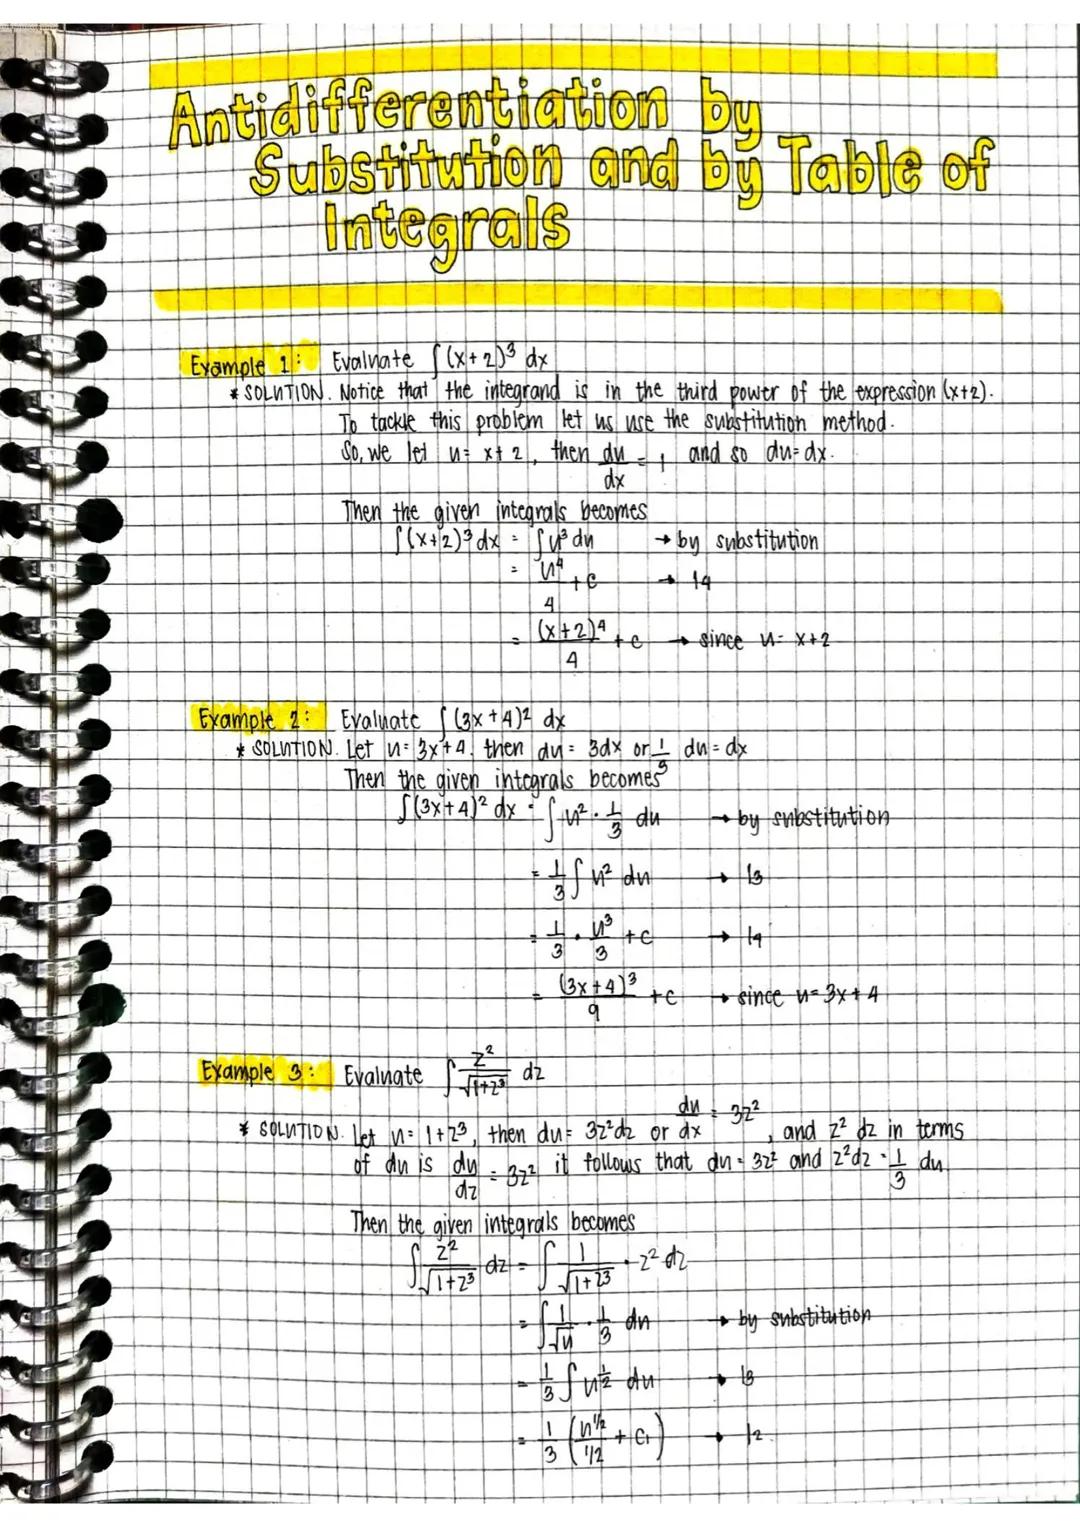 Antidifferentiation by
Substitution and by Table of
Integrals
Example 1: Evaluate ∫(x+2)³ dx
* SOLUTION. Notice that the integrand is in the third power of the expression (x+2).
To tackle this problem let us use the substitution method.
So, we let u = x+2, then du/dx = 1 and so du=dx.
Then the given integrals becomes
∫(x+2)³ dx = ∫u³ du → by substitution
= u⁴/4 + c → 14
= (x+2)⁴/4 + c → since u = x+2
Example 2: Evaluate ∫(3x+4)² dx
* SOLUTION. Let u = 3x+4, then du = 3dx or 1/3 du = dx
Then the given integrals becomes
∫(3x+4)² dx = ∫u² · 1/3 du → by substitution
= 1/3 ∫u² du → 13
= 1/3 · u³/3 + c → 14
= (3x+4)³/9 + c → since u = 3x+4
Example 3: Evaluate ∫ z²/√1+z³ dz
* SOLUTION. Let u = 1+z³, then du = 3z²dz or du/dx = 3z², and z² dz in terms
of du is du/dz = 3z² it follows that du = 3z² and z²dz = 1/3 du
Then the given integrals becomes
∫ z²/√1+z³ dz = ∫ 1/√1+z³ · z² dz
= ∫ 1/√u · 1/3 du → by substitution
= 1/3 ∫ u^½ du → 13
= 1/3 (u^1/2 / 1/2 + C₁) → 12